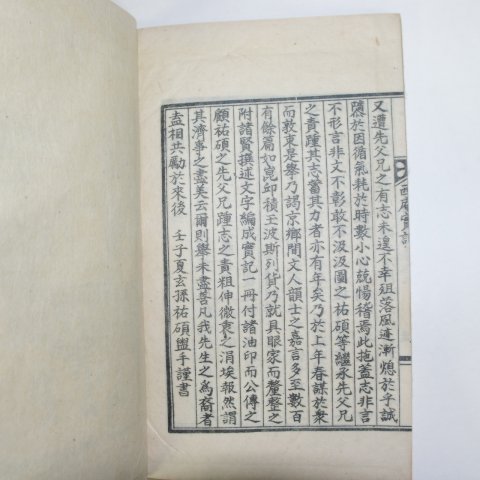 又遭先父兄之有志未遑不幸殂落風逢漸熄於乎誠
隳於因循氣耗於時數小心兢惕稽焉此抱盖志非言
不形言非文不彰敢不汲汲圖之祐碩等繼承先父兄
之責踵其志當其力者亦有年矣乃於上年春謀於衆
而敦束是擧乃謁京鄉間文人韻士之嘉言多至數百
有餘篇如崑邱積玉波斯列貨乃就具眼家而釐整之
附諸賢撰述文字編成實記一冊付諸油印而公傳之
顧祐碩之先父兄踵志之責粗伸微衷之涓埃報然謂
其濟事之盡美云爾則擧未盡善凡我先生之爲裔者
盍相共勵於來後 壬子夏玄孫祐碩盥手謹書
實記